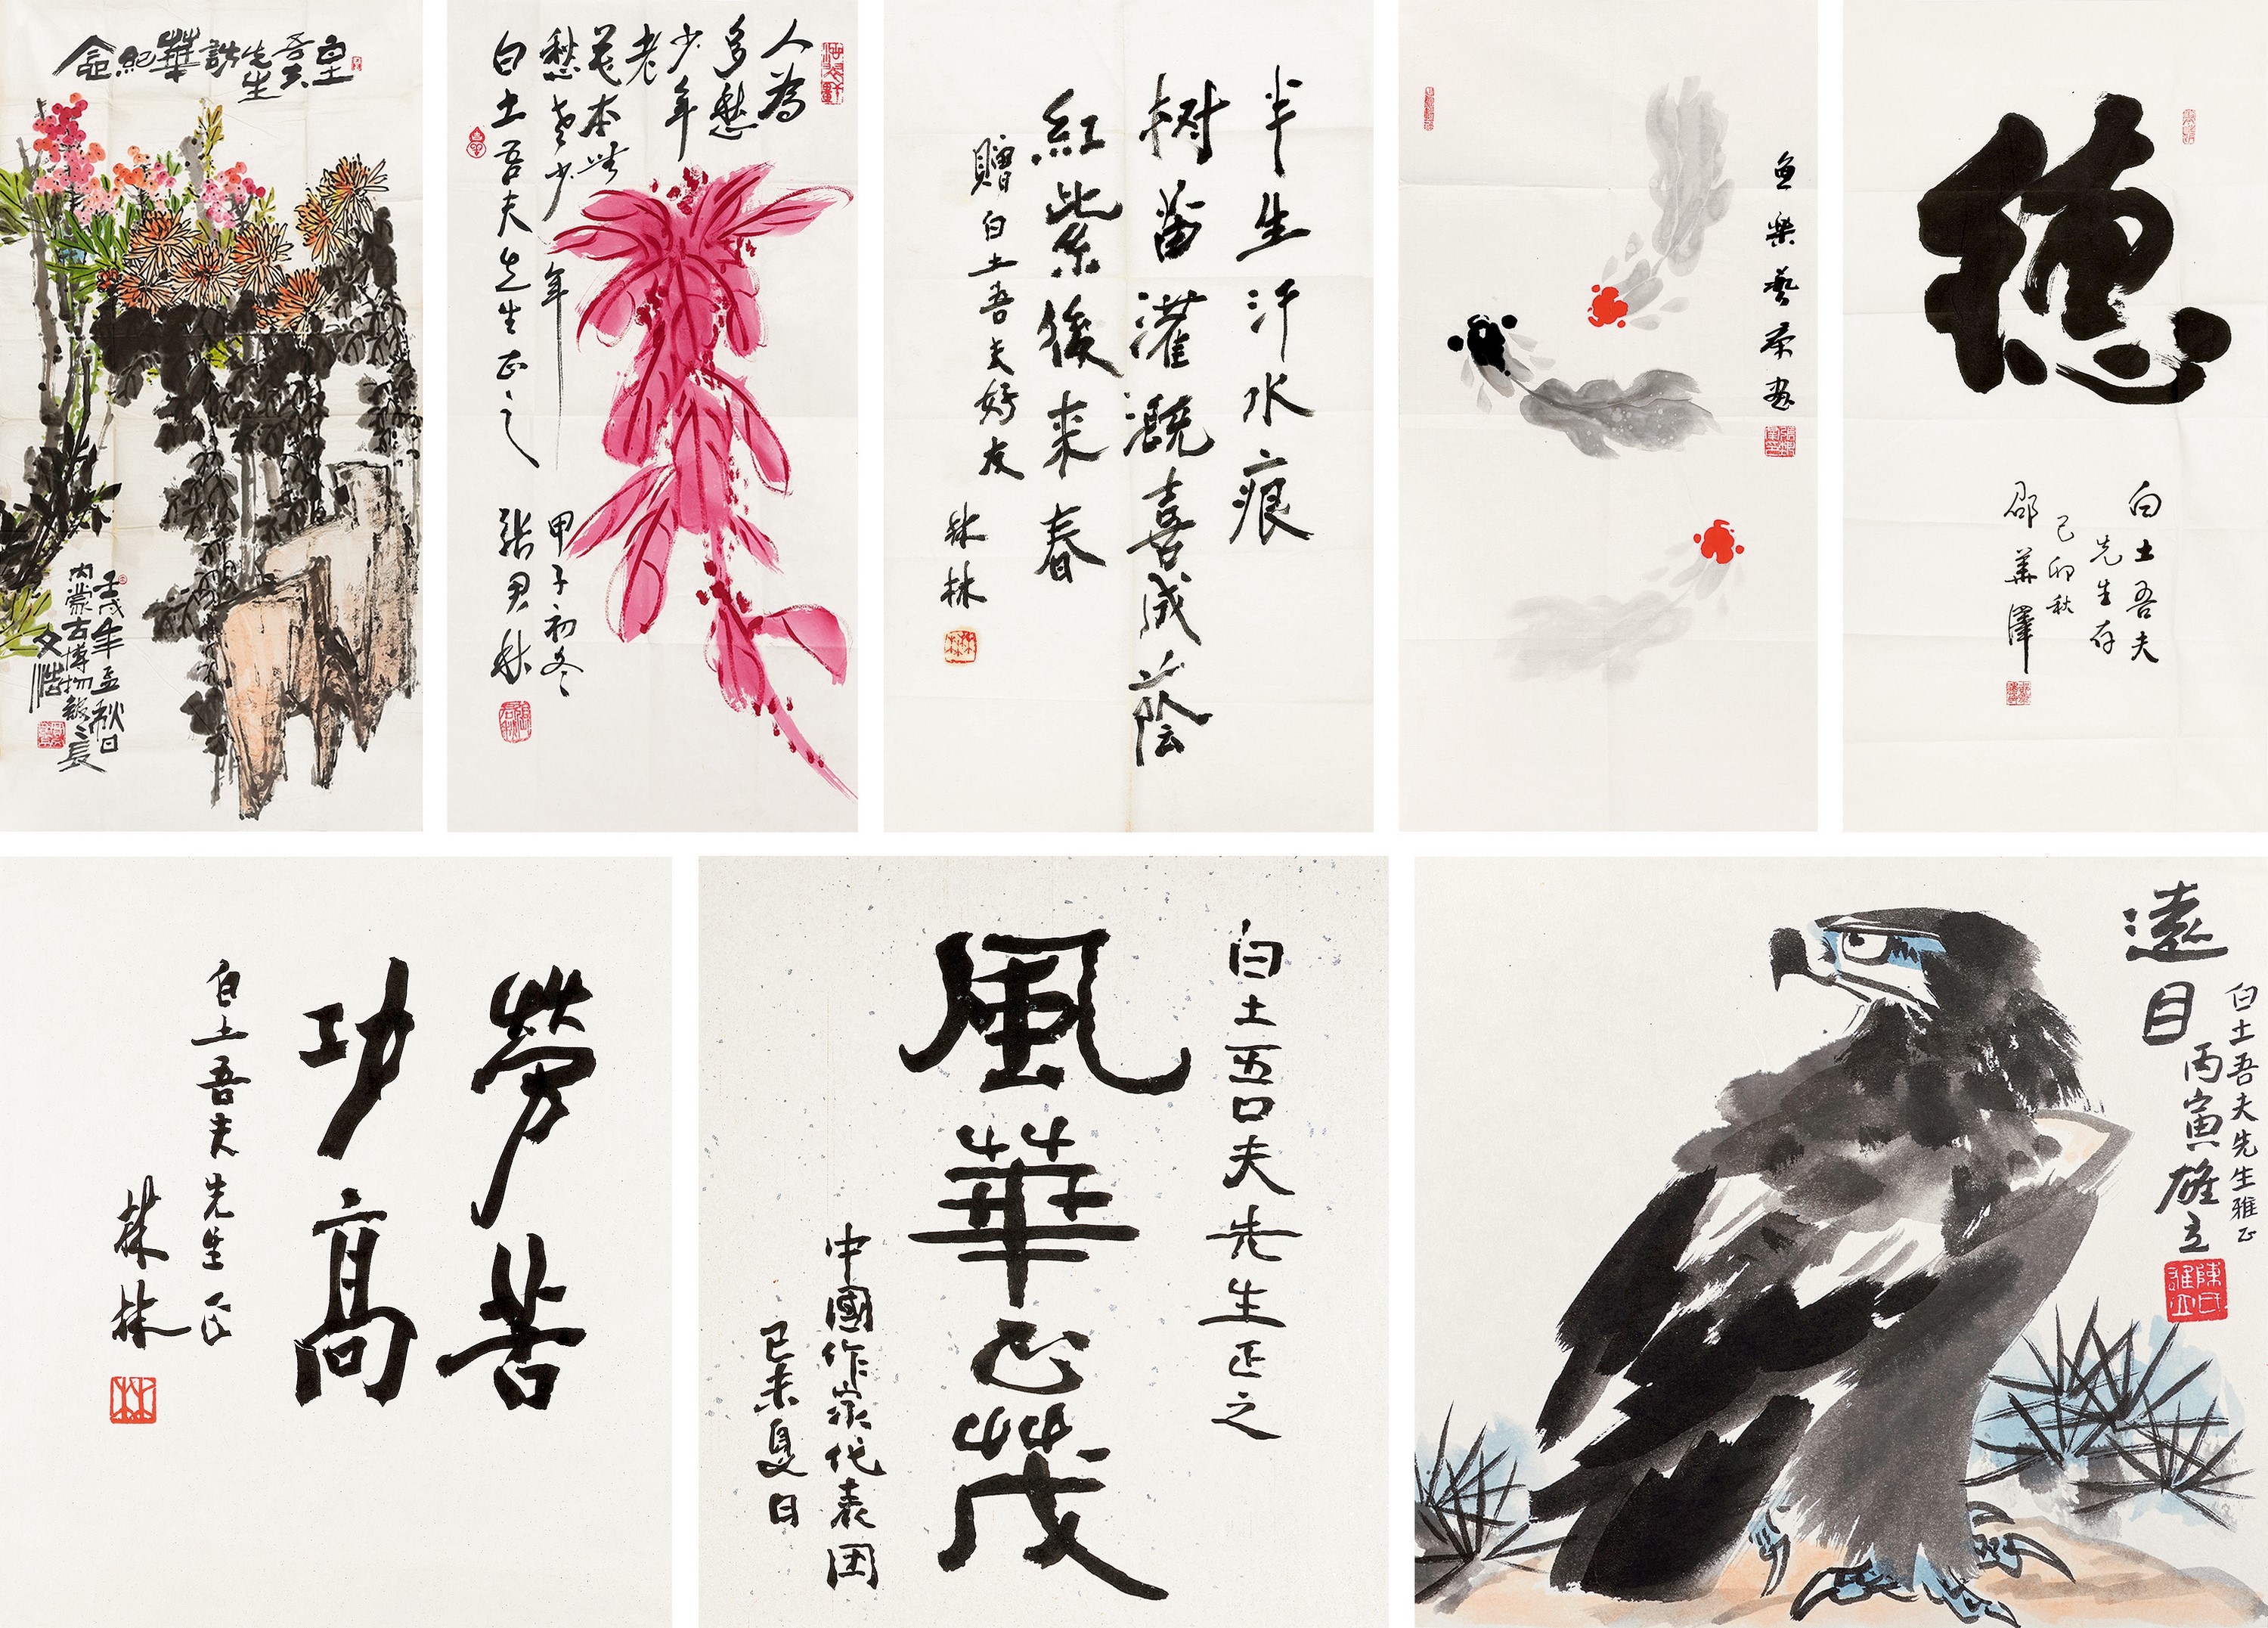 白土
吾夫
先生
訪
華
紀
念
壬戌年孟秋日
内蒙古博物館館長
文浩
人為
多愁
少年
老
花本無
愁老少
年
白土吾夫先生正之
甲子初冬
張君秋
半生汗水痕
樹苗灌溉喜成蔭
紅紫後來春
贈白土吾夫好友
林林
魚樂藝茶畫
德
白土吾夫
先生存
己卯秋
邵華澤
勞苦
功高
白土吾夫先生正
林林
林林
風華正茂
白土吾夫先生正之
中國作家代表团
己未夏日
遠目
白土吾夫先生雅正
丙寅雄立
陳氏
雄立